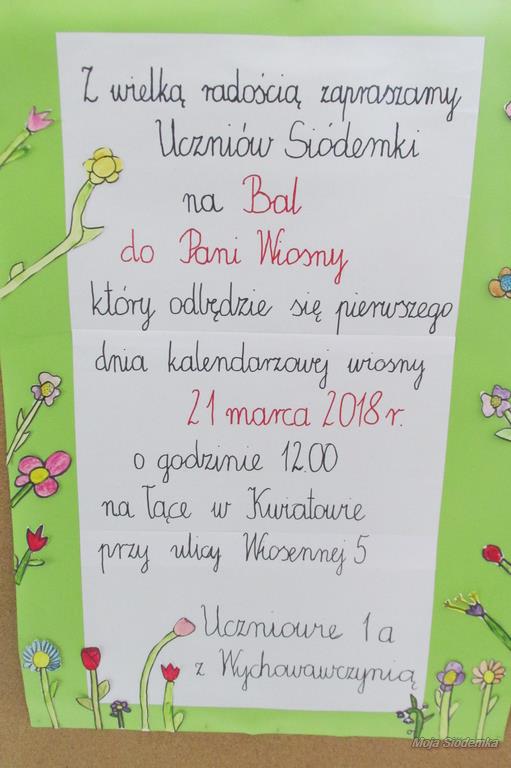 Z wielką radością zapraszamy
Uczniów Siódemki
na Bal
do Pani Wiosny
który odbędzie się pierwszego
dnia kalendarzowej wiosny
21 marca 2018 r.
o godzinie 12.00
na łące w Kwiatowie
przy ulicy Wiosennej 5
Uczniowie 1a
z Wychowawczynią
Moja Siódemka